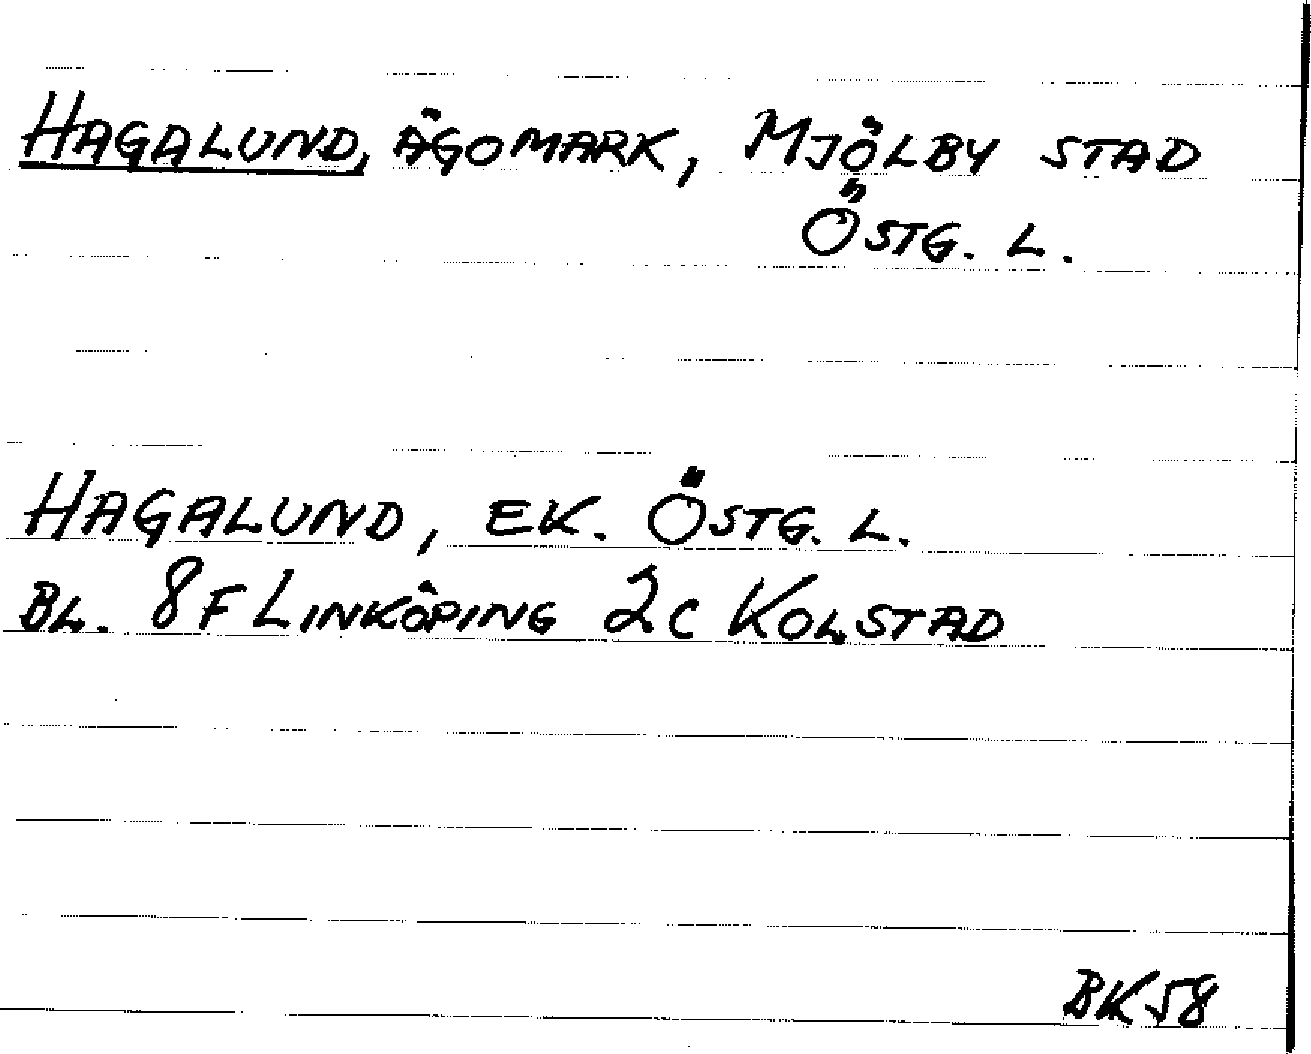 HAGALUND, ÄGOMARK, MJÖLBY STAD
ÖSTG. L.
HAGALUND, EK. ÖSTG. L.
BL. 8F LINKÖPING 2C KOLSTAD
BK58